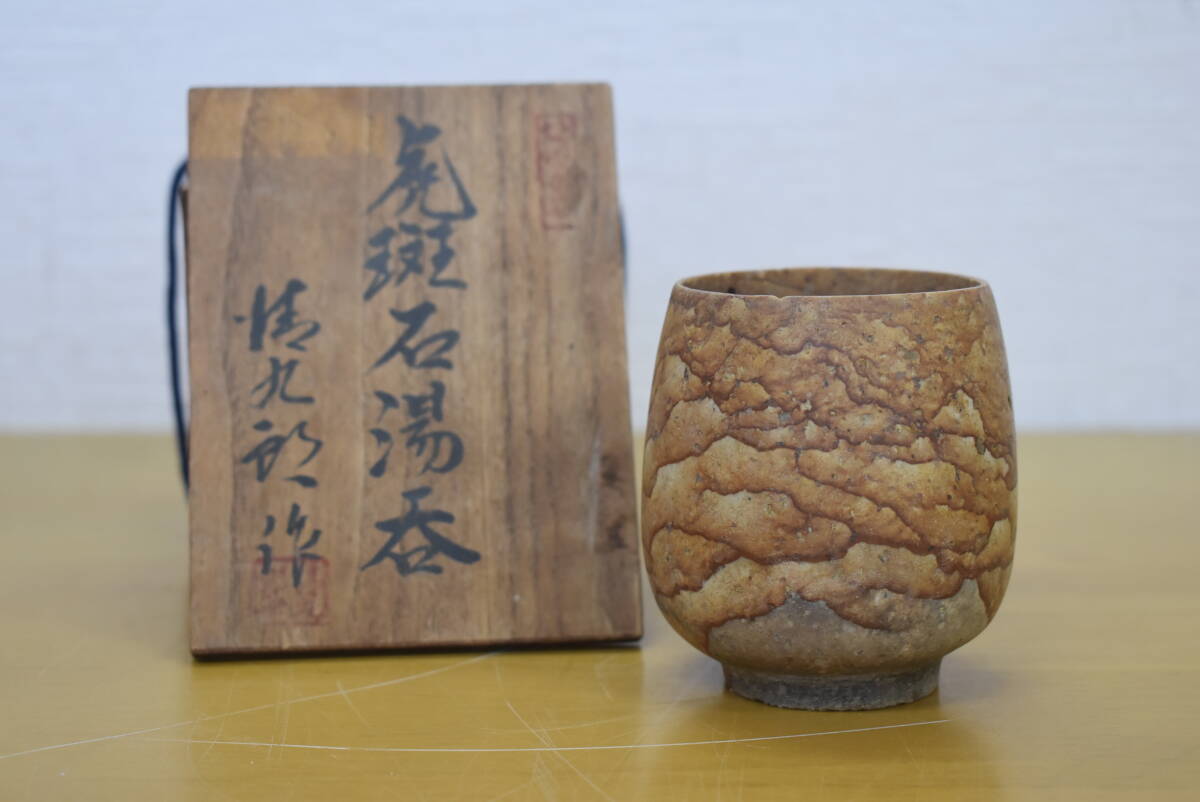 虎斑石湯呑
清九郎作